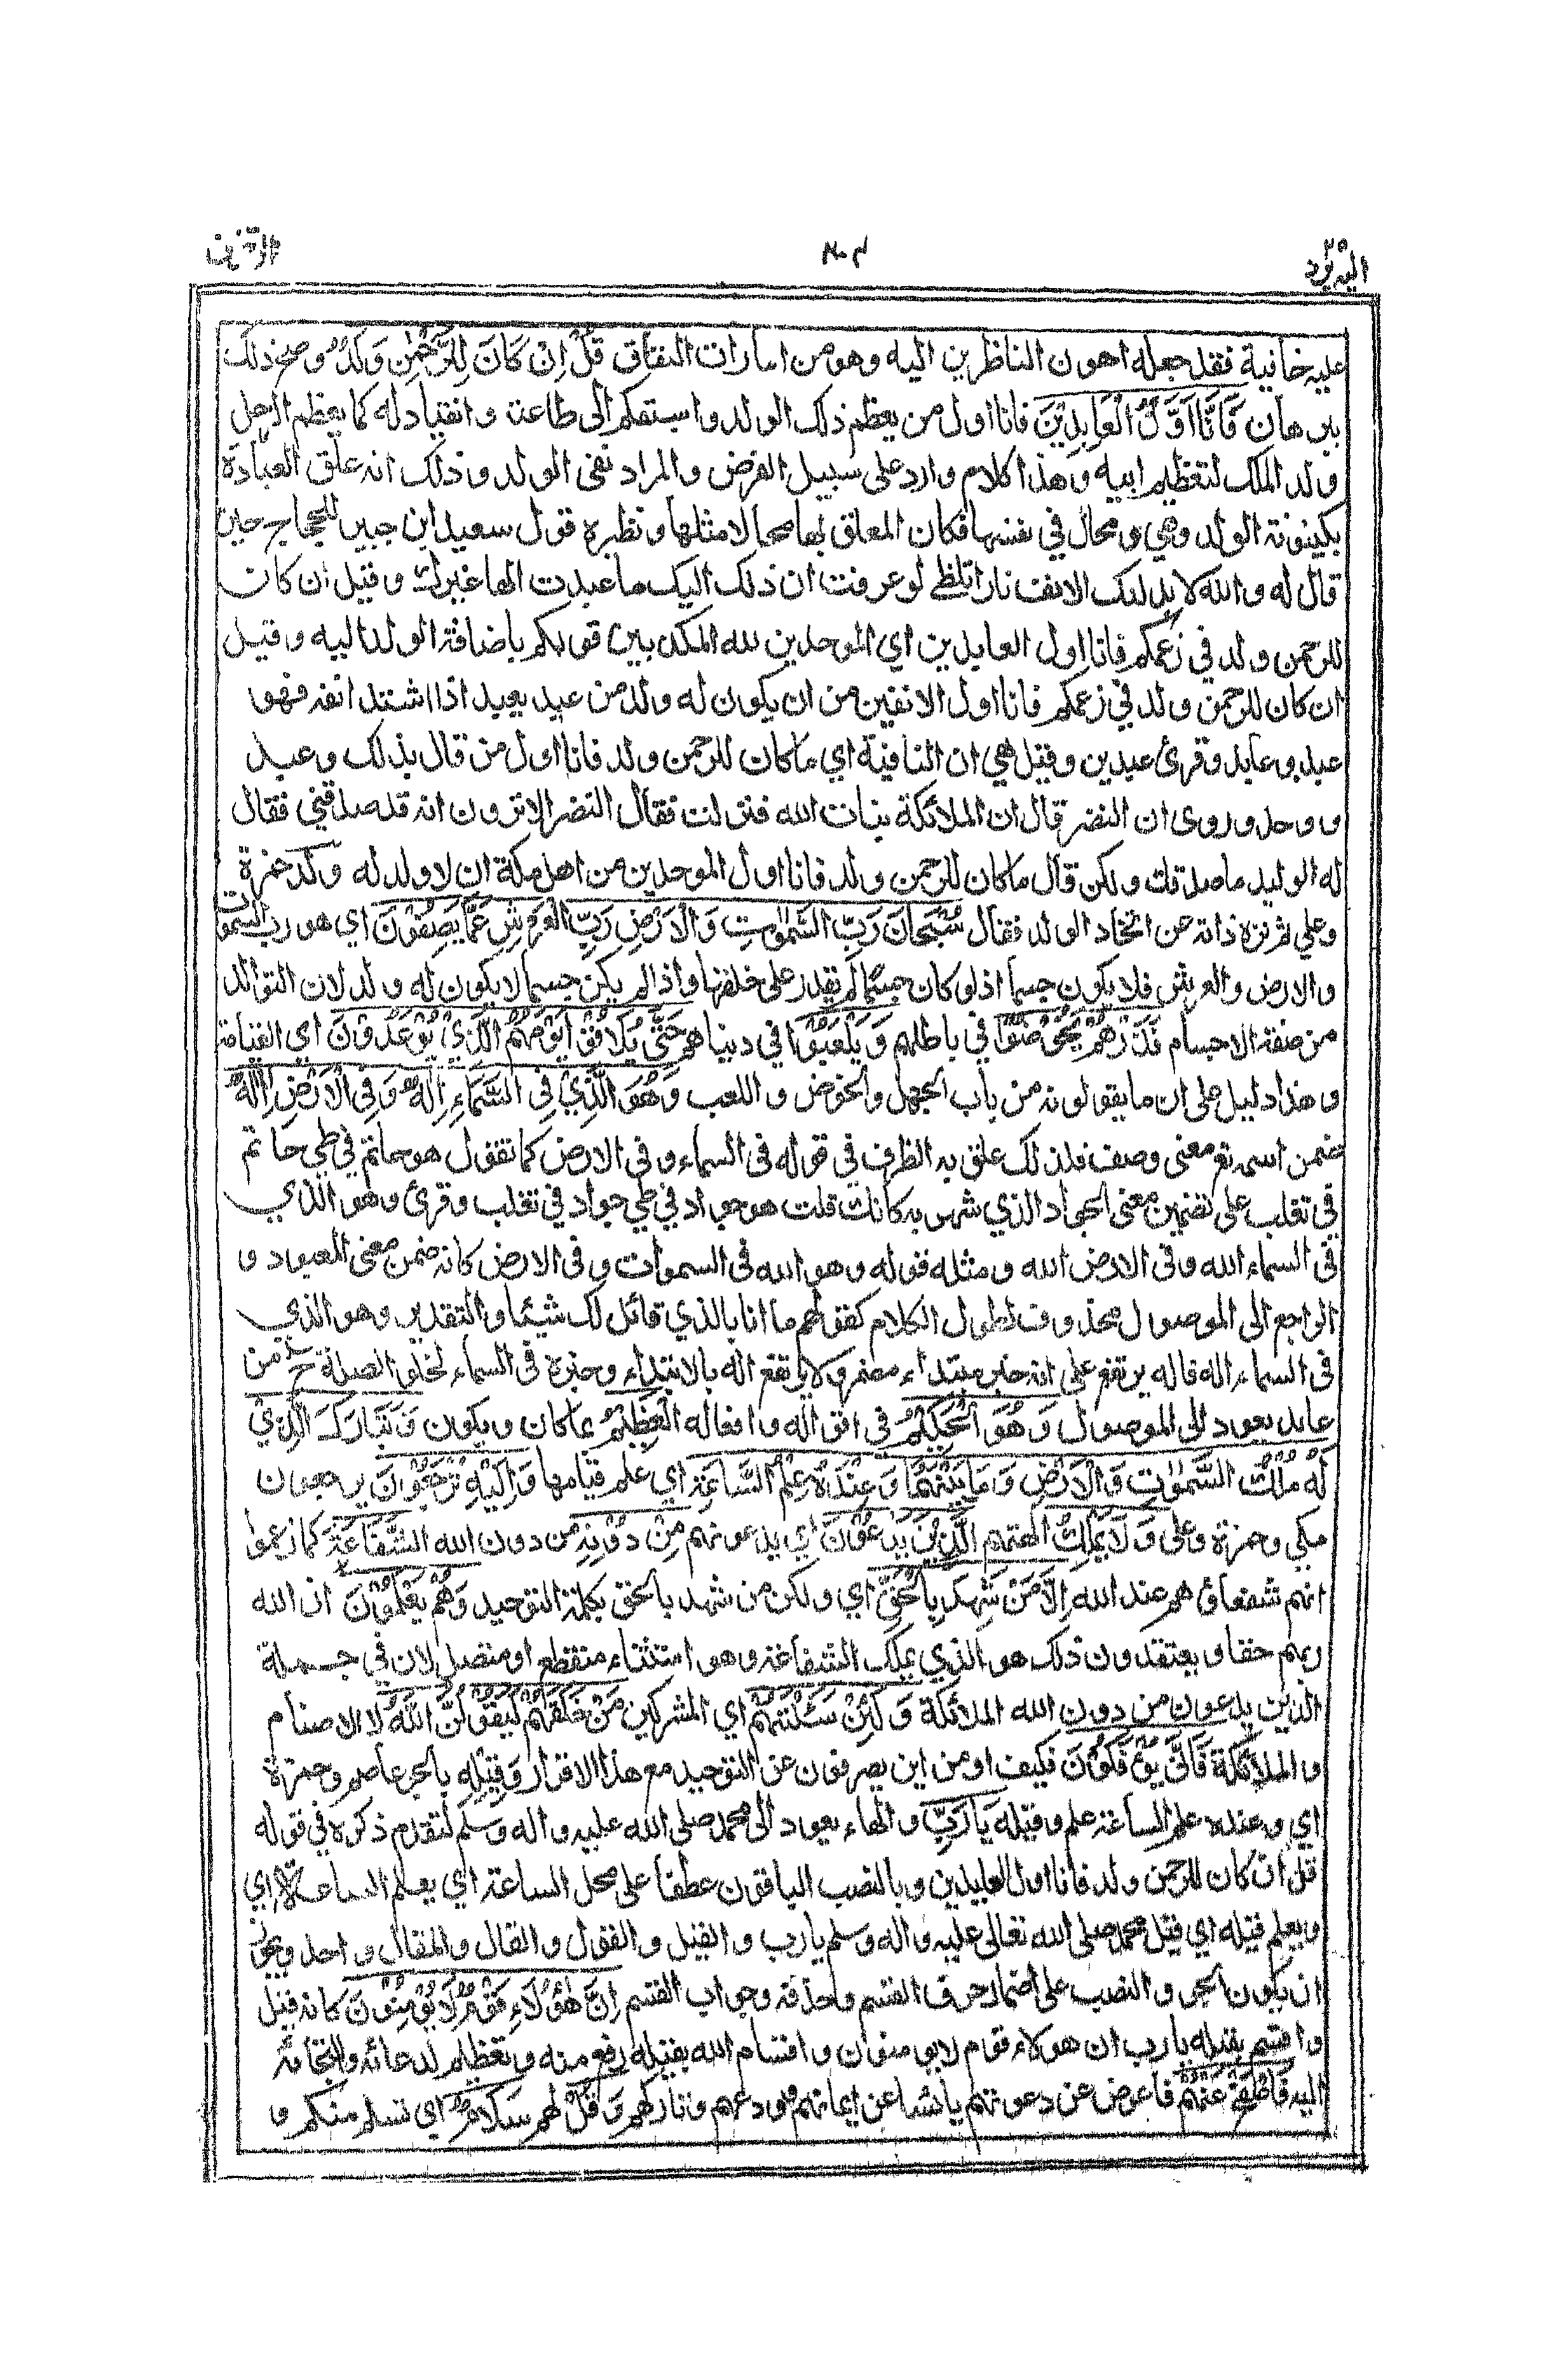 اليه يرد
الزخرف
عليه خافية فقد جعله اهون الناظرين اليه وهو من امارات النفاق قُلْ اِنْ كَانَ لِلرَّحْمٰنِ وَلَدٌ وصح ذلك
ببرهان فَاَنَا اَوَّلُ الْعَابِدِيْنَ فانا اول من يعظم ذلك الولد واسبقكم الى طاعته وانقياد له كما يعظم الرجل
ولد الملك لتعظيم ابيه وهذا كلام وارد على سبيل الفرض والمراد نفى الولد وذلك انه علق العبادة
بكينونة الولد وهي محال في نفسها فكان المعلق بها محالا مثلها ونظيره قول سعيد ابن جبير للحجاج حين
قال له والله لابدلنك الانف نارا تلظى لو عرفت ان ذلك اليك ما عبدت الها غيرك وقيل ان كان
للرحمن ولد في زعمكم فانا اول العابدين اي الموحدين لله المكذبين قولكم باضافة الولد اليه وقيل
ان كان للرحمن ولد في زعمكم فانا اول الانفين من ان يكون له ولد من عبد يعبد اذا اشتد انفه فهو
عبد وعابد وقرئ عبدين وقيل هي ان النافية اي ما كان للرحمن ولد فانا اول من قال بذلك وعبد
ووحد وروى ان النضر قال ان الملائكة بنات الله فنزلت فقال النضر الا ترون انه قد صدقني فقال
له الوليد ما صدقك ولكن قال ما كان للرحمن ولد فانا اول الموحدين من اهل مكة ان لا ولد له ولد حمزة
وعلي ثم نزه ذاته عن اتخاذ الولد فقال سُبْحَانَ رَبِّ السَّمٰوٰتِ وَالْاَرْضِ رَبِّ الْعَرْشِ عَمَّا يَصِفُوْنَ اي هو رب السموات
والارض والعرش فلا يكون جسما اذ لو كان جسما لم يقدر على خلقها واذا لم يكن جسما لا يكون له ولد لان التوالد
من صفة الاجسام فَذَرْهُمْ يَخُوْضُوْا في باطلهم وَيَلْعَبُوْا في دنياهم حَتّٰى يُلَاقُوْا يَوْمَهُمُ الَّذِيْ يُوْعَدُوْنَ اي القيامة
وهذا دليل على ان ما يقولونه من باب الجهل والخوض واللعب وَهُوَ الَّذِيْ فِى السَّمَاءِ اِلٰهٌ وَفِى الْاَرْضِ اِلٰهٌ
ضمن اسمه تع معنى وصف فلذلك علق به الظرف في قوله فى السماء وفى الارض كما تقول هو حاتم في طي حاتم
في تغلب على تضمين معنى الجواد الذي شهر به كانك قلت هو جواد في طي جواد في تغلب وقرئ وهو الذي
فى السماء الله وفى الارض الله ومثله قوله وهو الله فى السموات وفى الارض كانه ضمن معنى المعبود و
الراجع الى الموصول محذوف لطول الكلام كقولهم ما انا بالذي قائل لك شيئا والتقدير وهو الذي
فى السماء اله فاله يرتفع على انه خبر مبتداء مضمر ولا يرتفع اله بالابتداء وخبره فى السماء لخلو الصلة ح من
عايد يعود الى الموصول وَهُوَ الْحَكِيْمُ فى اقواله وافعاله الْعَلِيْمُ بما كان ويكون وَتَبَارَكَ الَّذِيْ
لَهُ مُلْكُ السَّمٰوٰتِ وَالْاَرْضِ وَمَا بَيْنَهُمَا وَعِنْدَهٗ عِلْمُ السَّاعَةِ اي علم قيامها وَاِلَيْهِ تُرْجَعُوْنَ يرجعون
مكي وحمزة وعلى وَلَا يَمْلِكُ الهتهم الَّذِيْنَ يَدْعُوْنَ اي يدعونهم مِنْ دُوْنِهٖ من دون الله الشَّفَاعَةَ كما زعموا
انهم شفعاؤهم عند الله اِلَّا مَنْ شَهِدَ بِالْحَقِّ اي ولكن من شهد بالحق بكلمة التوحيد وَهُمْ يَعْلَمُوْنَ ان الله
ربهم حقا ويعتقدون ذلك هو الذي يملك الشفاعة وهو استثناء منقطع او متصل لان في جملة
الذين يدعون من دون الله الملائكة وَلَئِنْ سَئَلْتَهُمْ اي المشركين مَنْ خَلَقَهُمْ لَيَقُوْلُنَّ اللّٰهُ لا الاصنام
والملائكة فَاَنّٰى يُؤْفَكُوْنَ فكيف او من اين يصرفون عن التوحيد مع هذا الاقرار وَقِيْلِهٖ بالجر عاصم وحمزة
اي وعنده علم الساعة علم وقيله يَا رَبِّ والهاء يعود الى محمد صلى الله عليه واله وسلم لتقدم ذكره في قوله
قل ان كان للرحمن ولد فانا اول العابدين وبالنصب الباقون عطفا على محل الساعة اي يعلم الساعة اي
ويعلم قيله اي قيل محمد صلى الله تعالى عليه واله وسلم يا رب والقيل والقول والقال والمقال واحد ويجوز
ان يكون الجر والنصب على اضمار حرف القسم وحذفه وجواب القسم اِنَّ هٰؤُلَاءِ قَوْمٌ لَا يُؤْمِنُوْنَ كانه قيل
واقسم بقيله يا رب ان هولاء قوم لا يومنون واقسام الله بقيله رفع منه وتعظيم لدعائه والتجائه
اليه فَاصْفَحْ عَنْهُمْ فاعرض عن دعوتهم يائسا عن ايمانهم وودعهم وتاركهم وَقُلْ لهم سَلَامٌ اي تسلم منكم و